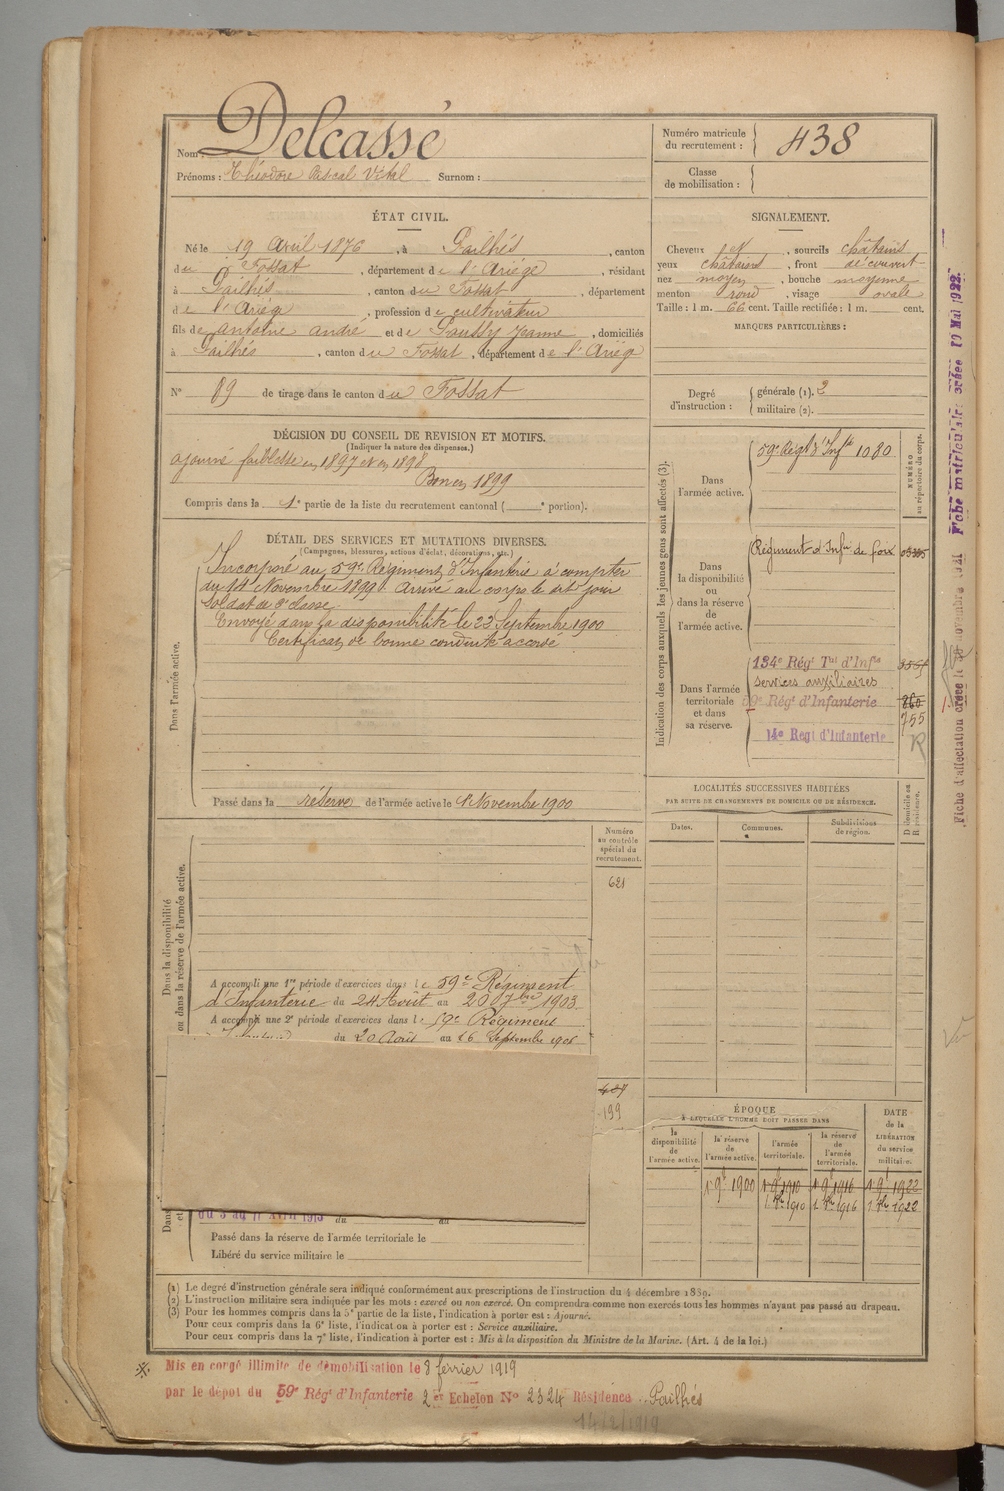 Nom : Delcassé
Prénoms : Théodore Pascal Vital Surnom :
Numéro matricule
du recrutement : 438
Classe
de mobilisation :
ÉTAT CIVIL.
Né le 19 Avril 1876, à Pailhés, canton
du Fossat, département de l'Ariége, résidant
à Pailhés, canton du Fossat, département
de l'Ariége, profession de cultivateur
fils de Antoine André et de Jeanne, domiciliés
à Pailhés, canton du Fossat, département de l'Ariége
N° 89 de tirage dans le canton du Fossat
SIGNALEMENT.
Cheveux et, sourcils châtains
yeux châtains, front découvert
nez moyen, bouche moyenne
menton rond, visage ovale
Taille : 1 m. 66 cent. Taille rectifiée : 1 m. cent.
MARQUES PARTICULIÈRES :
Degré
d'instruction :
générale (1). 2
militaire (2).
DÉCISION DU CONSEIL DE REVISION ET MOTIFS.
(Indiquer la nature des dispenses.)
ajourné faiblesse en 1897 et en 1898
Bon en 1899
Compris dans la 1e partie de la liste du recrutement cantonal ( e portion).
DÉTAIL DES SERVICES ET MUTATIONS DIVERSES.
(Campagnes, blessures, actions d'éclat, décorations, etc.)
Dans l'armée active.
Incorporé au 59e Régiment d'Infanterie à compter
du 14 Novembre 1899. Arrivé au corps le dit jour
soldat de 2e classe.
Envoyé dans la disponibilité le 22 Septembre 1900
Certificat de bonne conduite accordé
Passé dans la réserve de l'armée active le 1r Novembre 1900
Indication des corps auxquels les jeunes gens sont affectés (3).
NUMÉRO
au répertoire du corps.
Dans
l'armée active.
59e Régt d'Infie 1080
Dans
la disponibilité
ou
dans la réserve de
l'armée active.
Régiment d'Infie de foix
Dans l'armée
territoriale
et dans
sa réserve.
134e Régt Tal d'Infie
services auxiliaires
59e Régt d'Infanterie 860
755
14e Regt d'Infanterie R
LOCALITÉS SUCCESSIVES HABITÉES
PAR SUITE DE CHANGEMENTS DE DOMICILE OU DE RÉSIDENCE.
Dates.
Communes.
Subdivisions
de région.
D domicile ou
R résidence.
Dans la disponibilité
ou dans la réserve de l'armée active.
Numéro
au contrôle
spécial du
recrutement.
621
A accompli une 1re période d'exercices dans le 59e Régiment
d'Infanterie du 24 Août au 20 7bre 1903
A accompli une 2e période d'exercices dans le 59e Régiment
du 20 Août au 16 Septembre 1906
199
du 3 au 11 Avril 1913 du au
Passé dans la réserve de l'armée territoriale le
Libéré du service militaire le
ÉPOQUE
A LAQUELLE L'HOMME DOIT PASSER DANS
la
disponibilité
de
l'armée active.
la réserve
de
l'armée active.
l'armée
territoriale.
la réserve
de
l'armée
territoriale.
DATE
de la
LIBÉRATION
du service
militaire.
1r 9e 1900 1r 9e 1910 1r 9e 1916 1r 9e 1922
1r 8re 1910 1r 8re 1916 1r 8re 1922
(1) Le degré d'instruction générale sera indiqué conformément aux prescriptions de l'instruction du 4 décembre 1889.
(2) L'instruction militaire sera indiquée par les mots : exercé ou non exercé. On comprendra comme non exercés tous les hommes n'ayant pas passé au drapeau.
(3) Pour les hommes compris dans la 5e partie de la liste, l'indication à porter est : Ajourné.
Pour ceux compris dans la 6e liste, l'indication à porter est : Service auxiliaire.
Pour ceux compris dans la 7e liste, l'indication à porter est : Mis à la disposition du Ministre de la Marine. (Art. 4 de la loi.)
Mis en congé illimité de démobilisation le 8 février 1919
par le dépot du 59e Régt d'Infanterie 2e Echelon N° 2324 Résidence Pailhés
14/2/1919
Fiche d'affectation créée le novembre 1921 Fiche matriculaire créée 19 Mai 1922